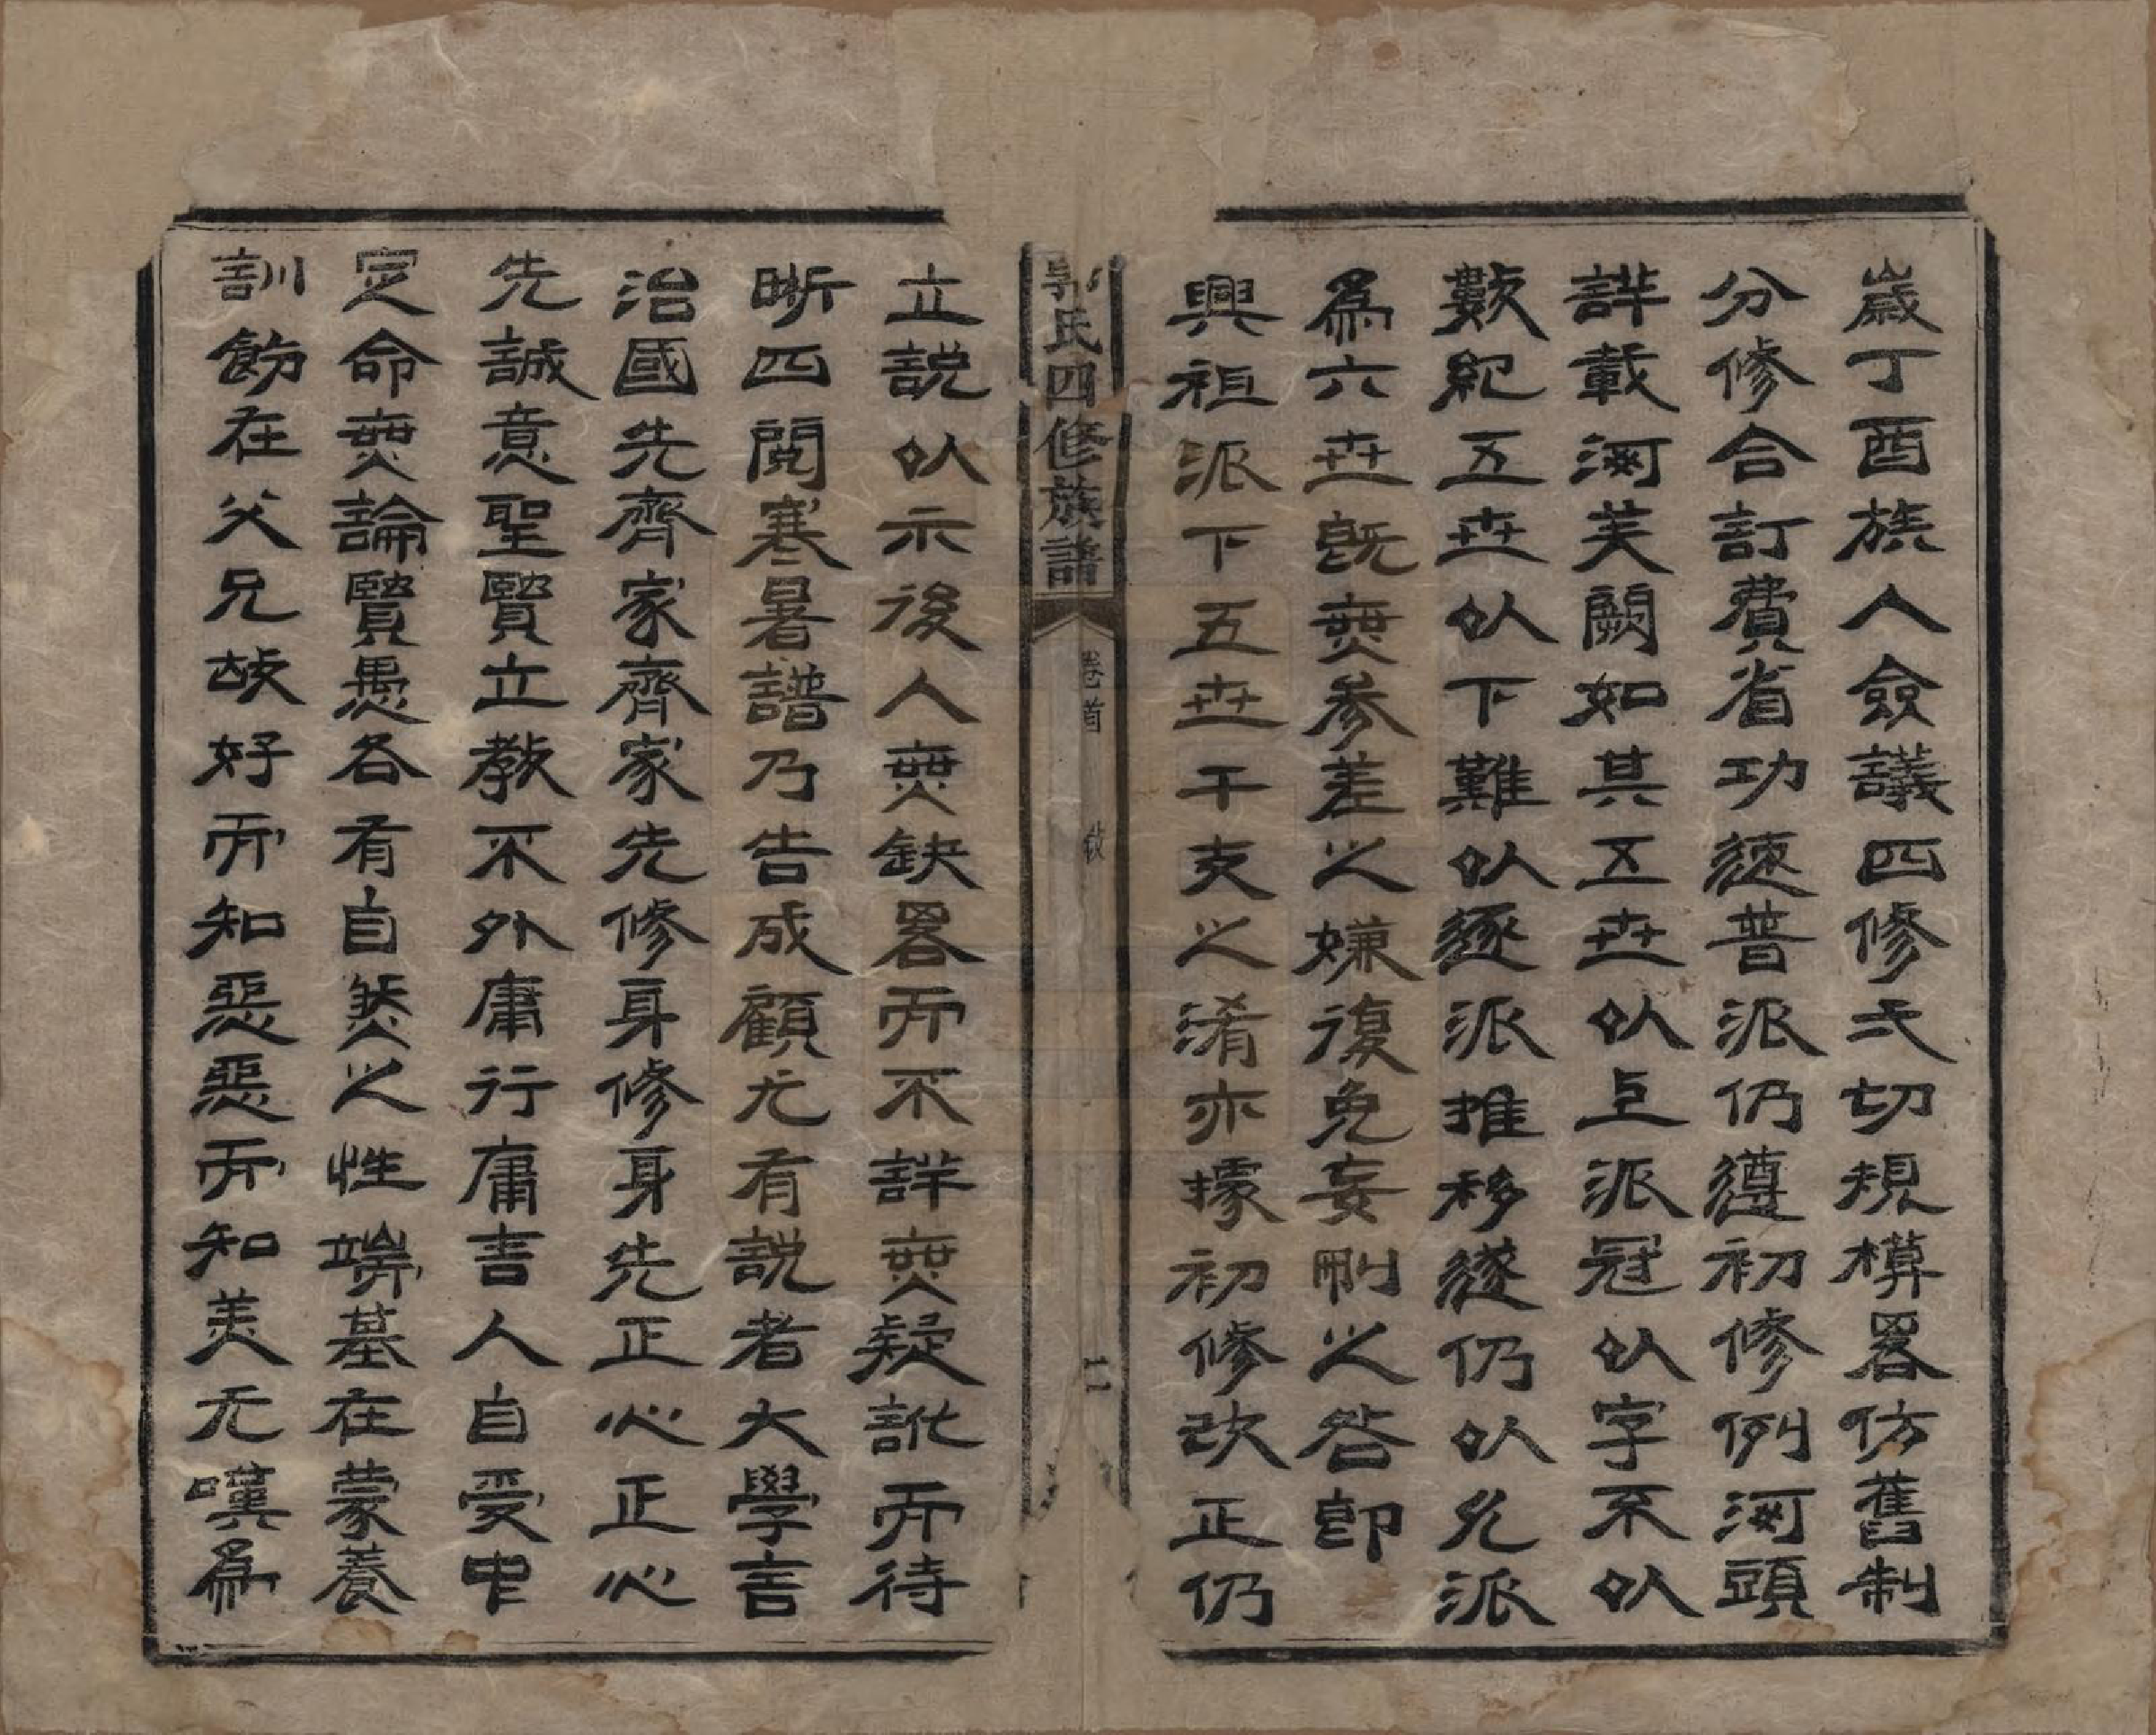 歲丁酉族人僉議四修弌切規橅畧仿舊制
分修合訂費省功速普派仍遵初修例河頭
詳載河芙闕如其五卋㕥上派冠㕥字不㕥
數紀五卋㕥下難㕥逐派推移遂仍㕥允派
爲六卋旣無參差㞢嫌復免妄刪㞢咎卽
興祖派下五卋干支㞢淆亦據初修改正仍
郭氏四修族譜
卷首
敘
二
立說㕥示後人無缺畧而不詳無疑訛而待
晰四閱寒暑譜乃告成顧尤有說者大學言
治國先齊家齊家先修身修身先正心正心
先誠意聖賢立教不外庸行庸言人自受中
定命無論賢愚各有自然㞢性端基在蒙養
訓飭在父兄故好而知惡惡而知美兀嘆爲